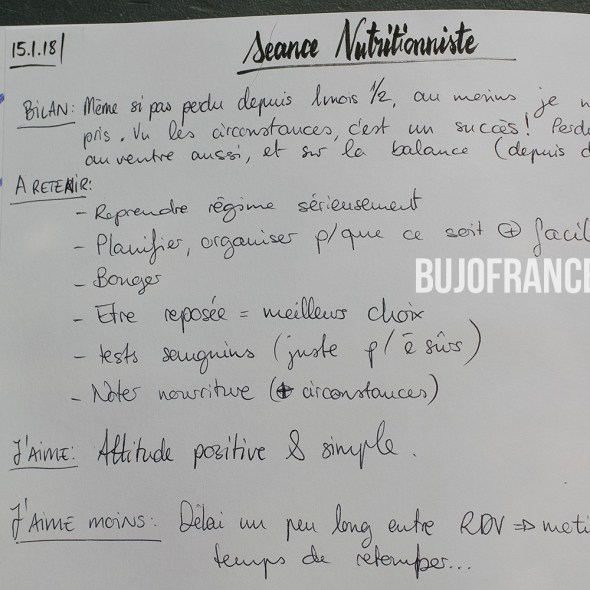 15.1.18 Seance Nutritionniste
BILAN: Même si pas perdu depuis 1mois 1/2, au moins je n
pris. Vu les circonstances, c'est un succès! Perdu
au ventre aussi, et sur la balance (depuis d
A RETENIR:
- Reprendre régime sérieusement
- Planifier, organiser p/que ce soit ⊕ facil
- Bouger
BUJOFRANCE
- Etre reposée = meilleurs choix
- tests sanguins (juste p/ ê sûrs)
- Noter nourriture (⊕ circonstances)
J'AIME: Attitude positive & simple.
J'AIME MOINS: Délai un peu long entre RDV ⇒
temps de retomber...